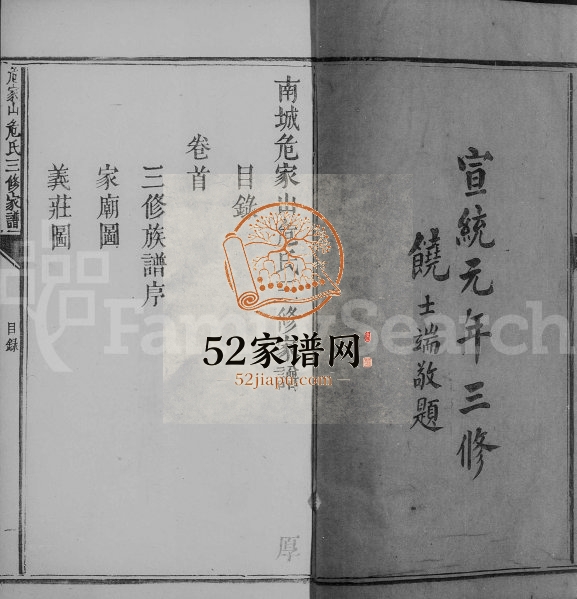 宣統元年三修
饒士端敬題
南城危家山危氏三修家譜
目錄
卷首
三修族譜序
家廟圖
義莊圖
危家山危氏三修家譜
目錄
厚
FamilySearch
52家谱网
52jiapu.com